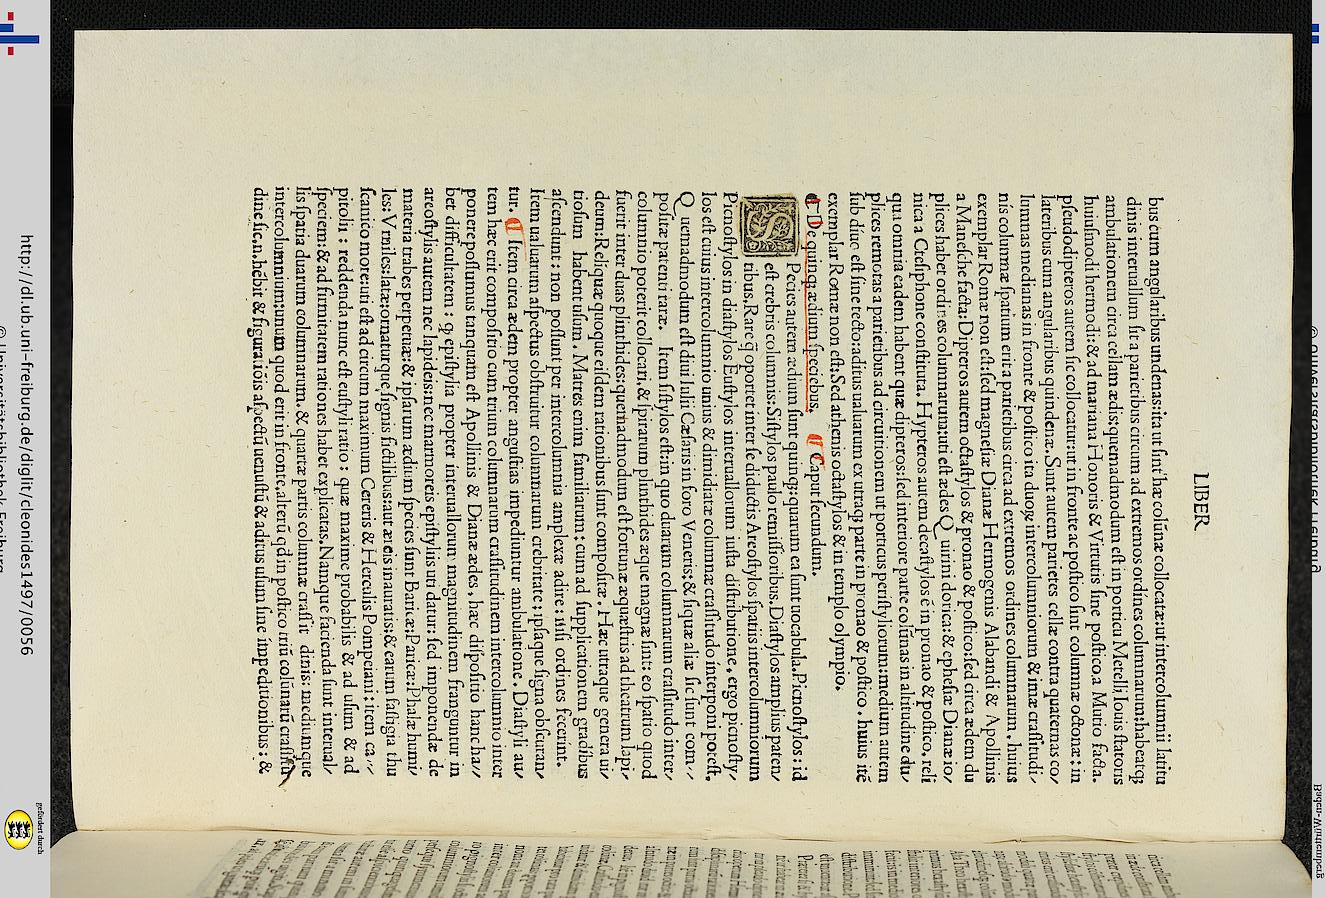 LIBER
bus cum angularibus undenas: ita ut sint hæ colūnæ collocatæ: ut intercolumnii latitu
dinis interuallum sit a parietibus circum ad extremos ordines columnarum: habeatq;
ambulationem circa cellam ædis: quemadmodum est in porticu Metelli Iouis statoris
huiusmodi hermodi: & ad mariana Honoris & Virtutis sine postico a Mutio facta.
pseudodipteros autem sic collocatur: ut in fronte ac postico sint columnæ octonæ: in
lateribus cum angularibus quindenæ. Sunt autem parietes cellæ contra quaternas co/
lumnas medianas in fronte & postico ita duoꝝ intercolumniorum & imæ crassitudi/
nis columnæ spatium erit a parietibus circa ad extremos ordines columnarum. huius
exemplar Romæ non est: sed magnesiæ Dianæ Hermogenis Alabandi & Apollinis
a Manesthe facta: Dipteros autem octastylos & pronao & postico: sed circa ædem du
plices habet ordines columnarum: uti est ædes Quirini dorica: & ephesiæ Dianæ io/
nica a Ctesiphone constituta. Hypteros autem decastylos ē in pronao & postico. reli
qua omnia eadem habent quæ dipteros: sed interiore parte colūnas in altitudine du/
plices remotas a parietibus ad circuitionem ut porticus peristyliorum: medium autem
sub diuo est sine tecto: aditus ualuarum ex utraq; parte in pronao & postico. huius itē
exemplar Romæ non est: Sed athenis octastylos & in templo olympio.
¶ De quinq; ædium speciebus. ¶ Caput secundum.
SPecies autem ædium sunt quinq;: quarum ea sunt uocabula. Picnostylos: id
est crebris columnis: Sistylos paulo remissioribus. Diastylos amplius paten/
tibus. Rare q̄ oportet inter se diductis Areostylos spatiis intercolumniorum
Picnostylos in diastylos Eustylos interuallorum iusta distributione. ergo picnosty/
los est cuius intercolumnio unius & dimidiatæ columnæ crassitudo interponi potest.
Quemadmodum est diui Iulii Cæsaris in foro Veneris: & si quæ aliæ sic sunt com//
positæ patenti raræ. Item sistylos est: in quo duarum columnarum crassitudo inter/
columnio poterit collocari. & spirarum plinthides æque magnæ sint: eo spatio quod
fuerit inter duas plinthides: quemadmodum est fortunæ æquestris ad theatrum lapi/
deum: Reliquæ quoque eisdem rationibus sunt compositæ. Hæc utraque genera ui/
tiosum habent usum. Matres enim familiarum: cum ad supplicationem gradibus
ascendunt: non possunt per intercolumnia amplexæ adire: nisi ordines fecerint.
Item ualuarum aspectus obstruitur columnarum crebritate: ipsaque signa obscuran/
tur. ¶ Item circa ædem propter angustias impediuntur ambulatione. Diastyli au/
tem hæc erit compositio cum trium columnarum crassitudinem intercolumnio inter
ponere possumus tanquam est Apollinis & Dianæ ædes. hæc dispositio hanc ha//
bet difficultatem: q̄ epistylia propter interuallorum magnitudinem franguntur in
areostylis autem nec lapideis: nec marmoreis epistyliis uti datur: sed imponendæ de
materia trabes perpetuæ: & ipsarum ædium species sunt Baricæ: Paricæ: Phalæ humi/
les: Vmiles: latæ: ornaturque signis fictilibus: aut æreis inauratis: & earum fastigia thu
scanico more: uti est ad circum maximum Cereris & Herculis Pompeiani: item ca//
pitoli: reddenda nunc est eustyli ratio: quæ maxime probabilis & ad usum & ad
speciem: & ad firmitatem rationes habet explicatas. Namque facienda sunt interual/
lis spatia duarum columnarum. & quartæ partis columnæ crassit dinis: mediumque
intercolumnium: unum quod erit in fronte. alterū qd in postico triū colūnarū crassitu
dine sic. n. hēbit & figurationis aspectū uenustū & aditus usum sine impeditionibus: &
http://dl.ub.uni-freiburg.de/diglit/cleonides1497/0056
© Universitätsbibliothek Freiburg
gefördert durch